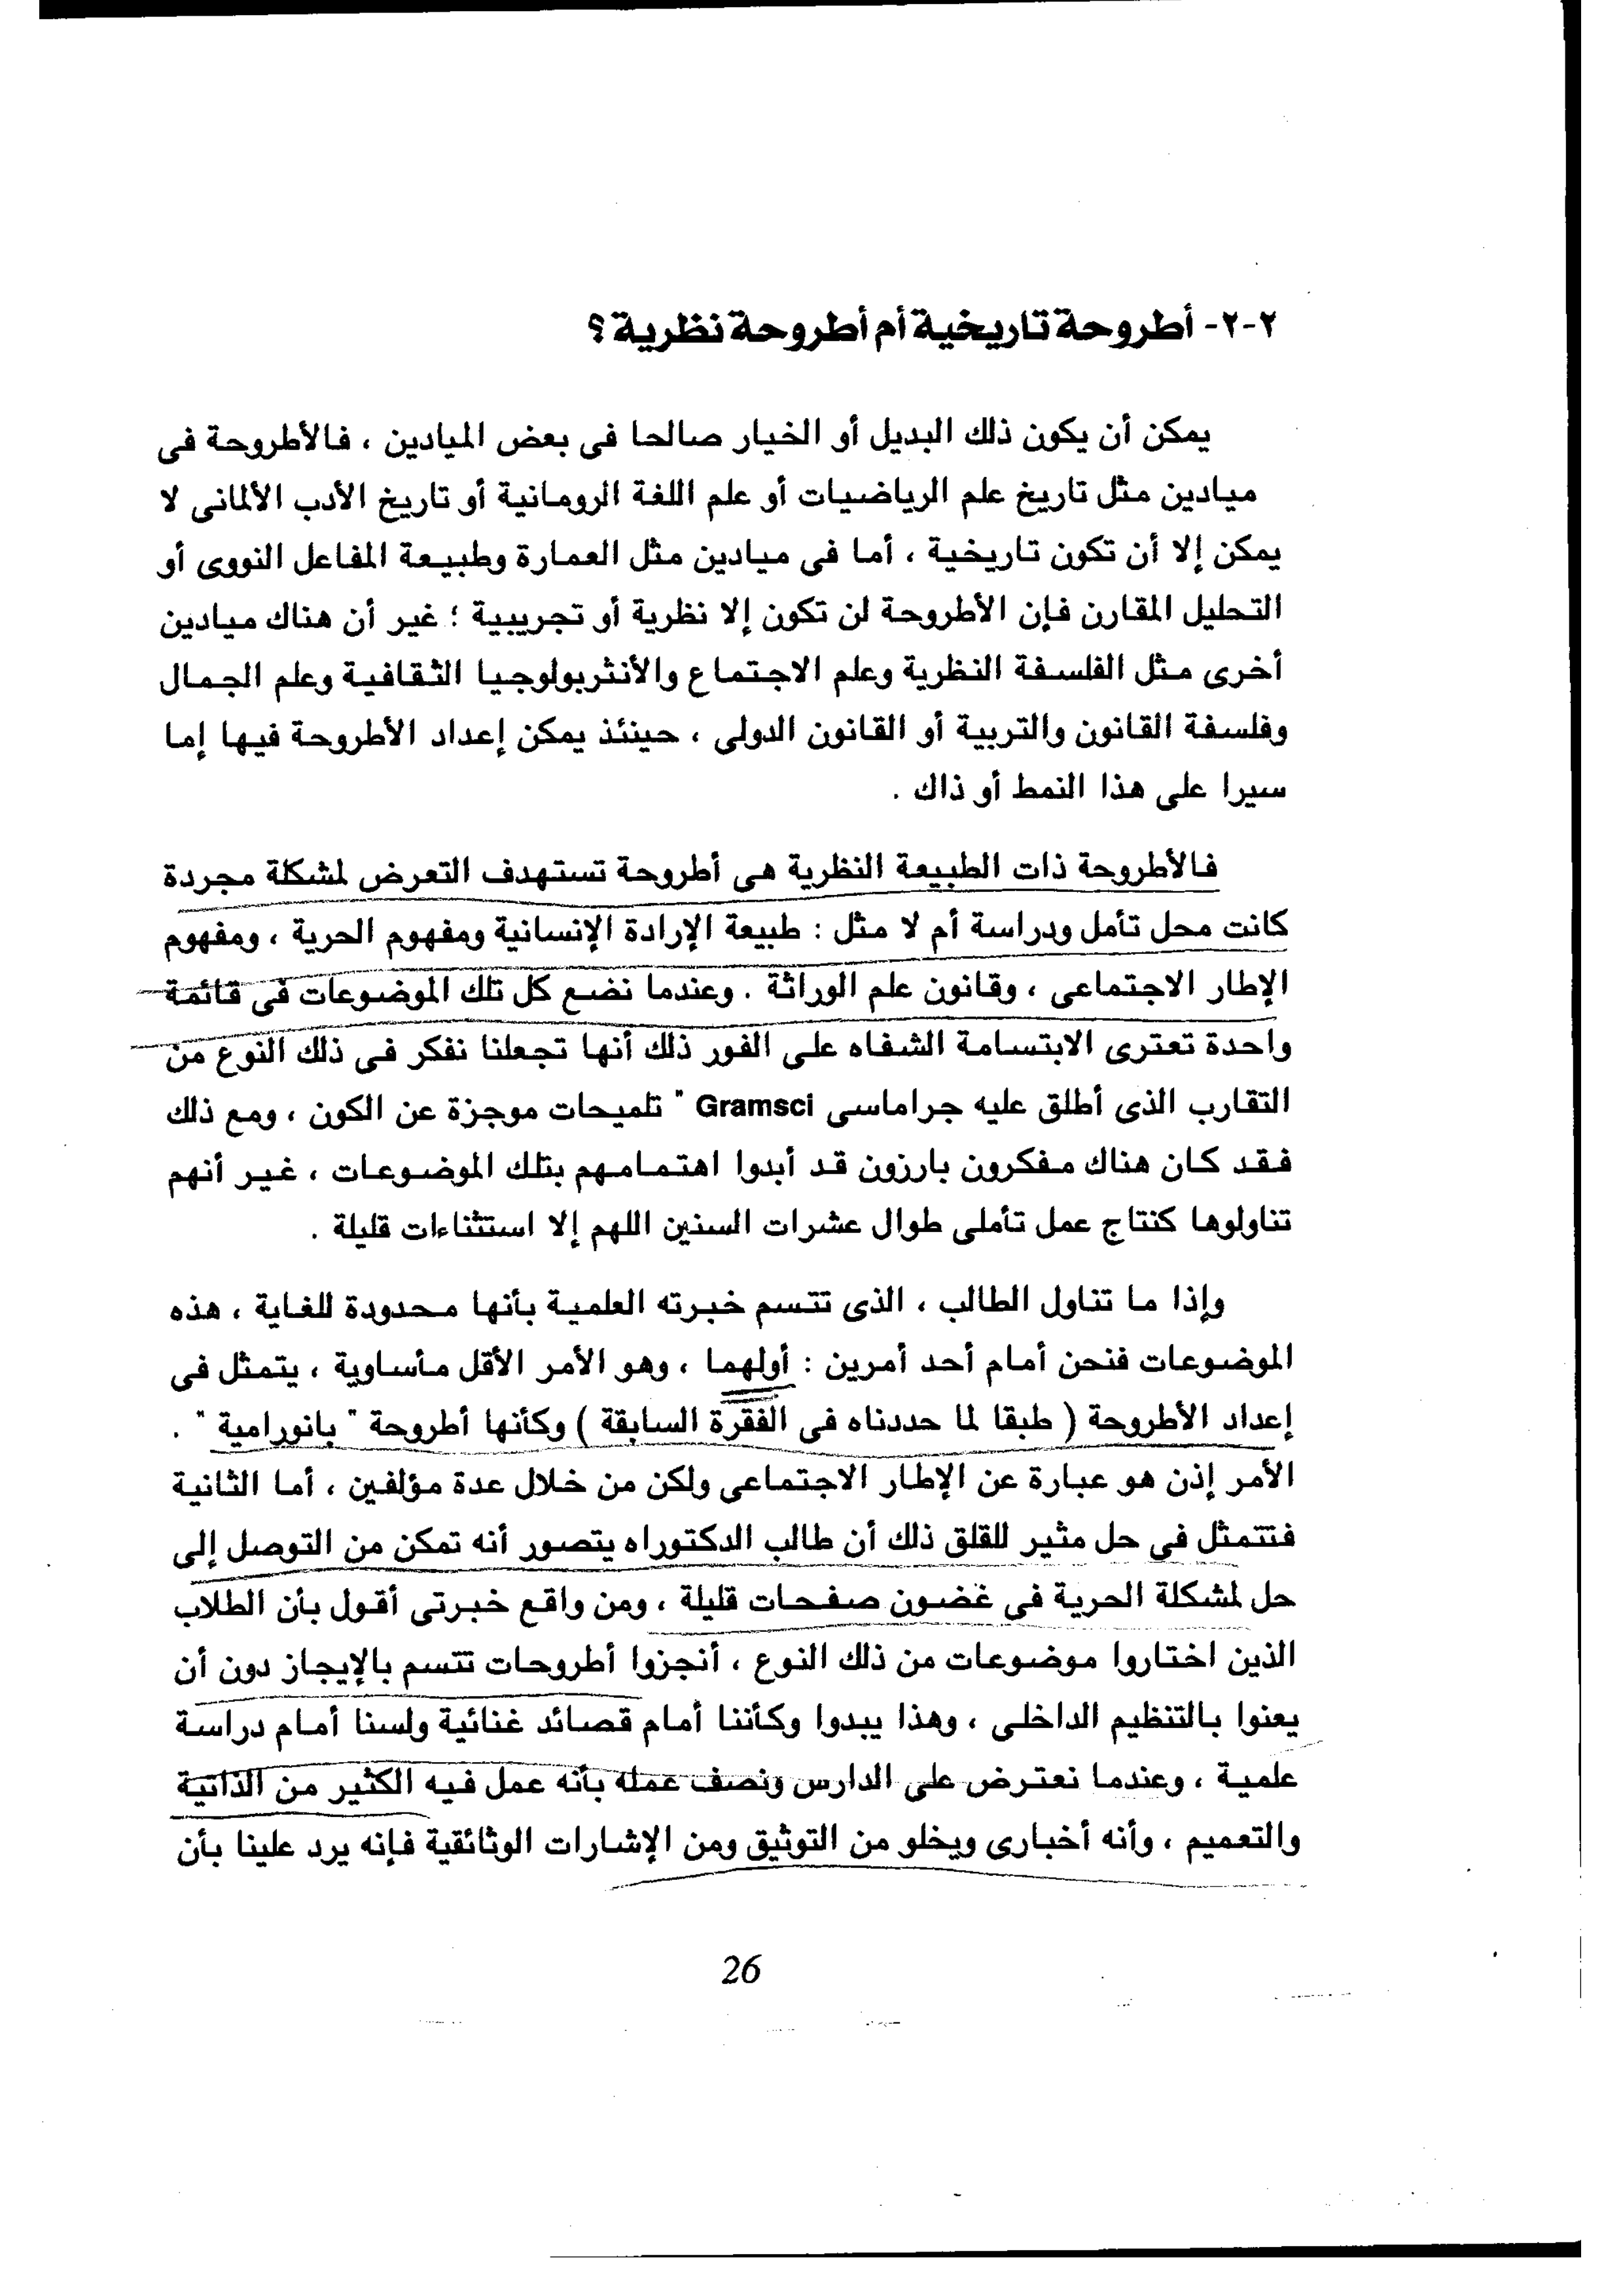 ٢-٢- أطروحة تاريخية أم أطروحة نظرية ؟
يمكن أن يكون ذلك البديل أو الخيار صالحا فى بعض الميادين ، فالأطروحة فى
ميادين مثل تاريخ علم الرياضيات أو علم اللغة الرومانية أو تاريخ الأدب الألمانى لا
يمكن إلا أن تكون تاريخية ، أما فى ميادين مثل العمارة وطبيعة المفاعل النووى أو
التحليل المقارن فإن الأطروحة لن تكون إلا نظرية أو تجريبية ؛ غير أن هناك ميادين
أخرى مثل الفلسفة النظرية وعلم الاجتماع والأنثربولوجيا الثقافية وعلم الجمال
وفلسفة القانون والتربية أو القانون الدولى ، حينئذ يمكن إعداد الأطروحة فيها إما
سيرا على هذا النمط أو ذاك .
فالأطروحة ذات الطبيعة النظرية هى أطروحة تستهدف التعرض لمشكلة مجردة
كانت محل تأمل ودراسة أم لا مثل : طبيعة الإرادة الإنسانية ومفهوم الحرية ، ومفهوم
الإطار الاجتماعى ، وقانون علم الوراثة . وعندما نضع كل تلك الموضوعات فى قائمة
واحدة تعترى الابتسامة الشفاه على الفور ذلك أنها تجعلنا نفكر فى ذلك النوع من
التقارب الذى أطلق عليه جراماسى Gramsci " تلميحات موجزة عن الكون ، ومع ذلك
فقد كان هناك مفكرون بارزون قد أبدوا اهتمامهم بتلك الموضوعات ، غير أنهم
تناولوها كنتاج عمل تأملى طوال عشرات السنين اللهم إلا استثناءات قليلة .
وإذا ما تناول الطالب ، الذى تتسم خبرته العلمية بأنها محدودة للغاية ، هذه
الموضوعات فنحن أمام أحد أمرين : أولهما ، وهو الأمر الأقل مأساوية ، يتمثل فى
إعداد الأطروحة ( طبقا لما حددناه فى الفقرة السابقة ) وكأنها أطروحة " بانورامية " .
الأمر إذن هو عبارة عن الإطار الاجتماعى ولكن من خلال عدة مؤلفين ، أما الثانية
فتتمثل فى حل مثير للقلق ذلك أن طالب الدكتوراه يتصور أنه تمكن من التوصل إلى
حل لمشكلة الحرية فى غضون صفحات قليلة ، ومن واقع خبرتى أقول بأن الطلاب
الذين اختاروا موضوعات من ذلك النوع ، أنجزوا أطروحات تتسم بالإيجاز دون أن
يعنوا بالتنظيم الداخلى ، وهذا يبدوا وكأننا أمام قصائد غنائية ولسنا أمام دراسة
علمية ، وعندما نعترض على الدارس ونصف عمله بأنه عمل فيه الكثير من الذاتية
والتعميم ، وأنه أخبارى ويخلو من التوثيق ومن الإشارات الوثائقية فإنه يرد علينا بأن
26